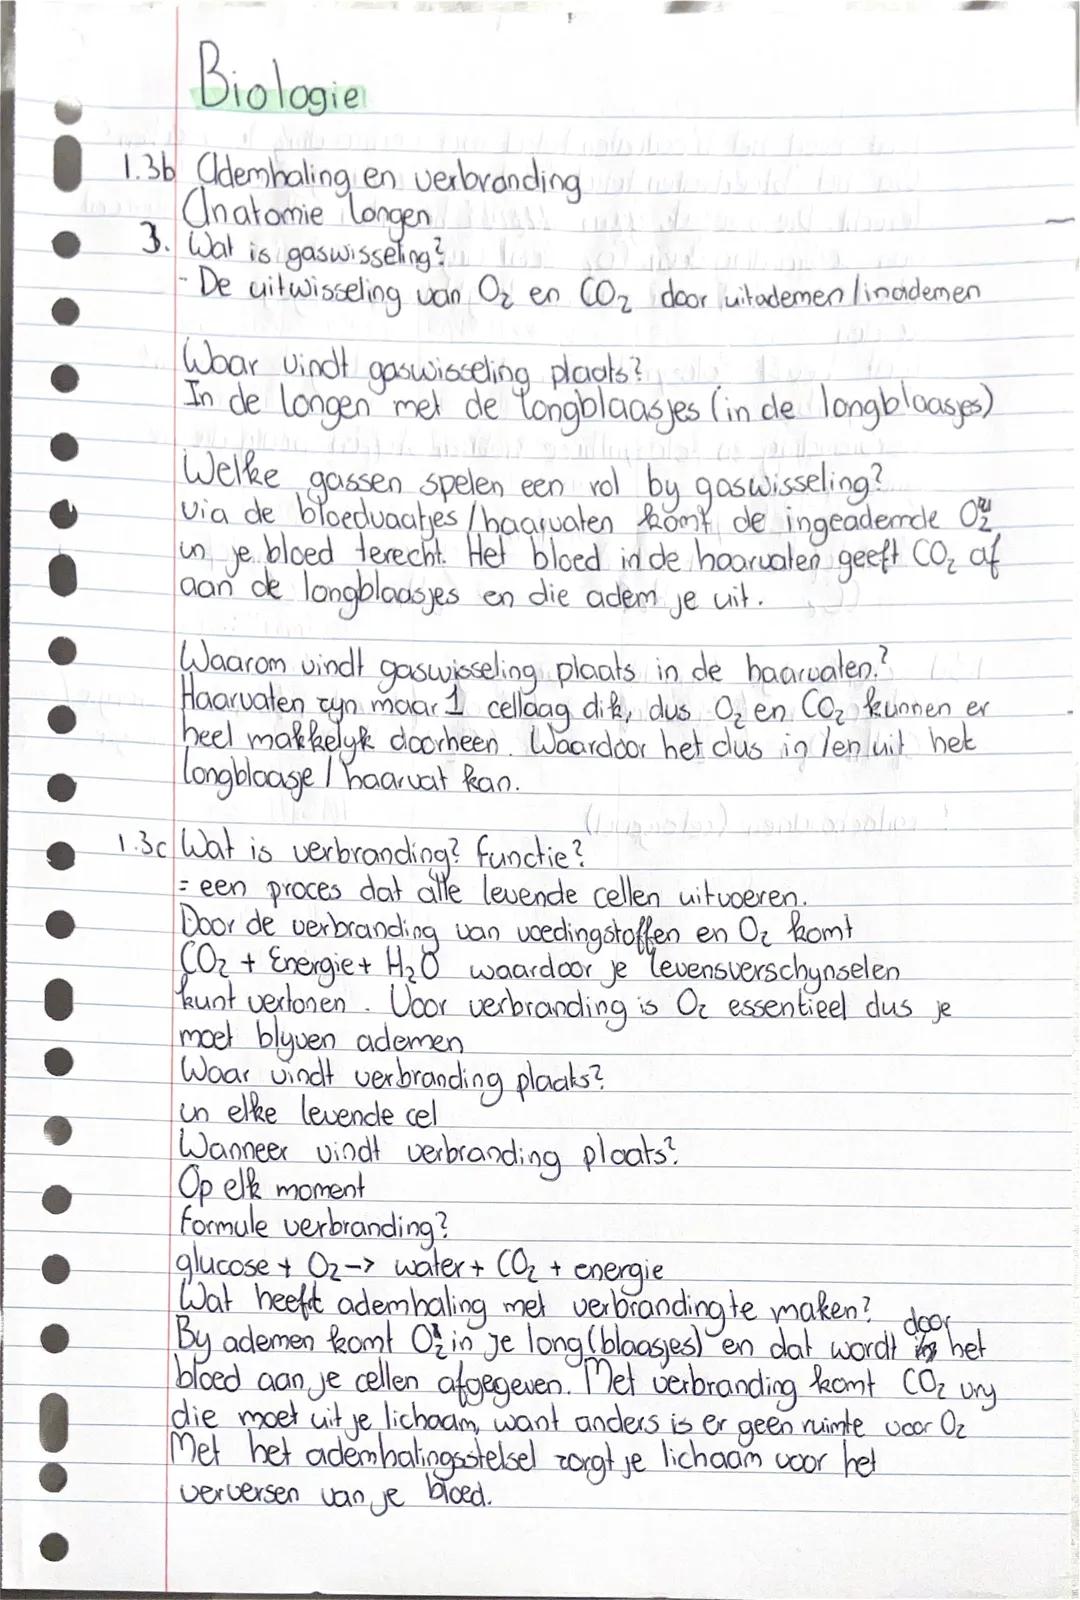 Biologie
1.3b Ademhaling en verbranding
Anatomie longen
3. Wat is gaswisseling?
- De uitwisseling van O₂ en CO₂ door uitademen/inademen
Waar vindt gaswisseling plaats?
In de longen met de longblaasjes (in de longblaasjes)
Welke gassen spelen een rol by gaswisseling?
via de bloedvaatjes/haarvaten komt de ingeademde O₂
in je bloed terecht. Het bloed in de haarvaten geeft CO₂ af
aan de longblaasjes en die adem je uit.
Waarom vindt gaswisseling plaats in de haarvaten?
Haarvaten zyn maar 1 cellaag dik, dus O₂ en CO₂ kunnen er
heel makkelyk doorheen. Waardoor het dus in/en uit het
longblaasje/haarvat kan.
1.3c Wat is verbranding? functie?
= een proces dat alle levende cellen uitvoeren.
Door de verbranding van voedingstoffen en O₂ komt
CO₂ + Energie + H₂O waardoor je levensverschynselen
kunt vertonen. Voor verbranding is O₂ essentieel dus je
moet blyven ademen
Waar vindt verbranding plaats?
in elke levende cel
Wanneer vindt verbranding plaats?
Op elk moment
formule verbranding?
glucose + O₂ -> water + CO₂ + energie
Wat heeft ademhaling met verbranding te maken?
By ademen komt O₂ in je long(blaasjes) en dat wordt door het
bloed aan je cellen afgegeven. Met verbranding komt CO₂ vry
die moet uit je lichaam, want anders is er geen ruimte voor O₂
Met het ademhalingsstelsel zorgt je lichaam voor het
verversen van je bloed.